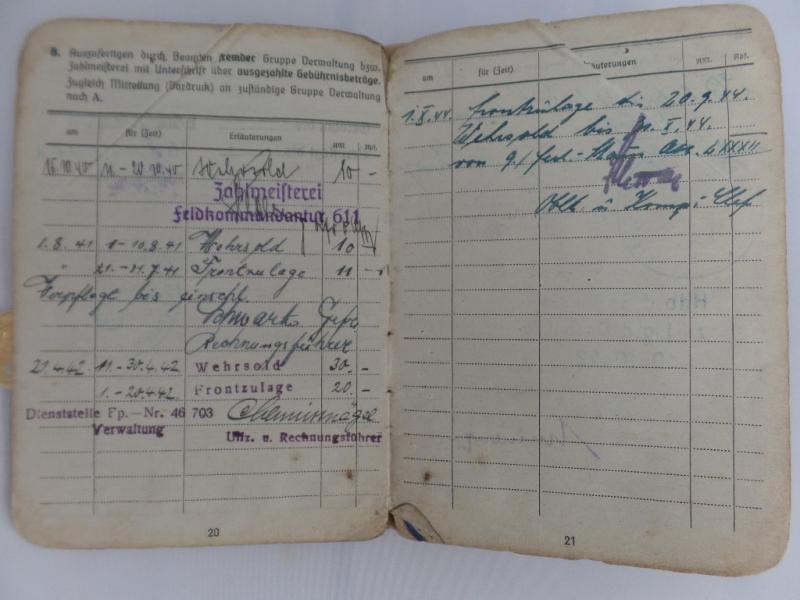 B. Auszufertigen durch Beamten fremder Gruppe Verwaltung bzw.
Zahlmeisterei mit Unterschrift über ausgezahlte Gebührnisbeträge.
Zugleich Mitteilung (Vordruck) an zuständige Gruppe Verwaltung
nach A.
am für (Zeit) Erläuterungen RM. Rpf.
15.10.40 11.-20.10.40 Wehrsold 10 -
Zahlmeisterei
Feldkommandantur 611
1.8.41 1-10.8.41 Wehrsold 10
" 21.-31.7.41 Frontzulage 11 -
Verpflegt bis einschl.
Rechnungsführer
21.4.42 11.-30.4.42 Wehrsold 30.-
1.-20.4.42 Frontzulage 20.-
Dienststelle Fp.-Nr. 46 703
Verwaltung Uffz. u. Rechnungsführer
20
am für (Zeit) Erläuterungen RM. Rpf.
1.X.44. Frontzulage bis 20.9.44.
Wehrsold bis X.44.
von 9./
Oblt. u. Komp.-Chef
21